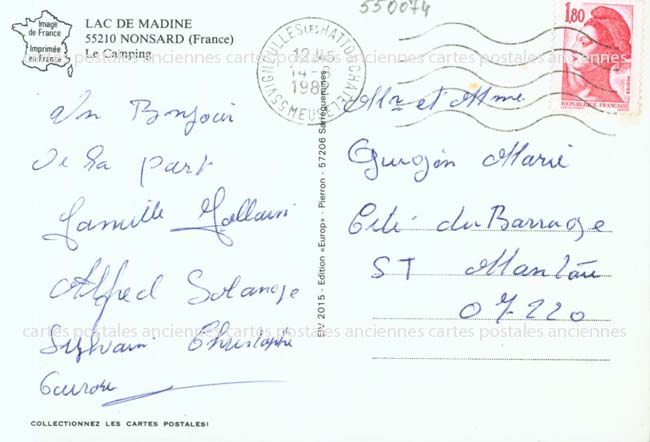 550074
Image
de France
Imprimée
en France
LAC DE MADINE
55210 NONSARD (France)
Le Camping
55 VIGNEULLES LES HATTONCHATEL
MEUSE
1,80
REPUBLIQUE FRANÇAISE
Un Bonjour
De la part
Famille
Alfred Solange
Sylvain Christophe
EIV 2015 - Edition «Europ» - Pierron - 57206 Sarreguemines
Mr et Mme
Marie
Cité du Barrage
ST
07220
cartes postales anciennes cartes postales anciennes cartes postales anciennes
cartes postales anciennes cartes postales anciennes cartes postales anciennes
COLLECTIONNEZ LES CARTES POSTALES!